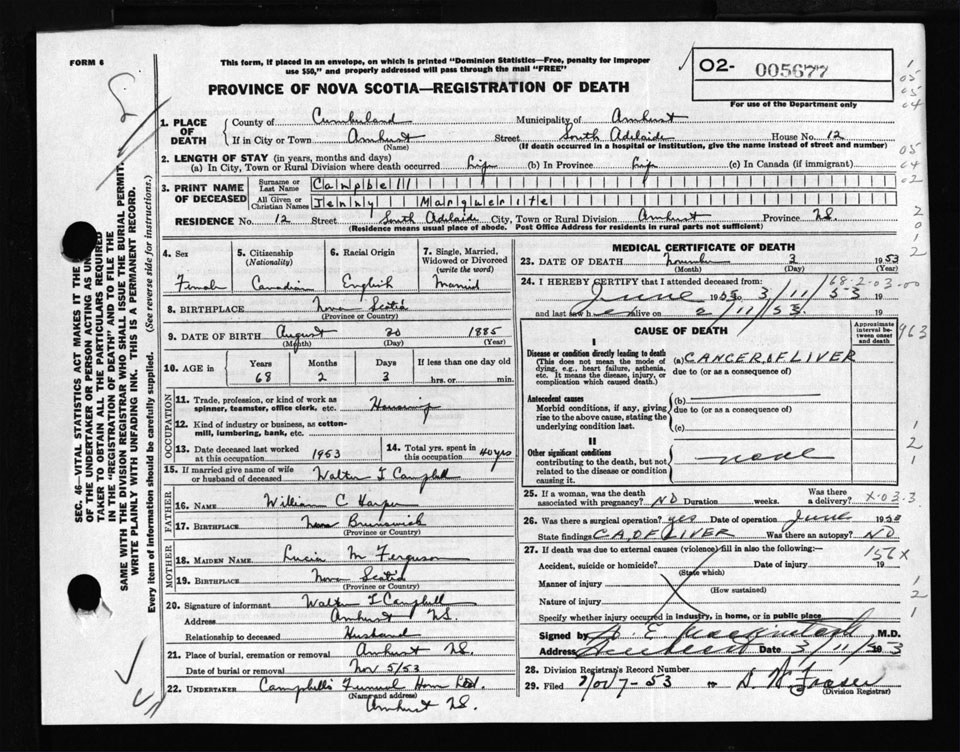 FORM 6
This form, if placed in an envelope, on which is printed "Dominion Statistics—Free, penalty for improper
use $50," and properly addressed will pass through the mail "FREE"
PROVINCE OF NOVA SCOTIA—REGISTRATION OF DEATH
02- 005677
For use of the Department only
1. PLACE OF DEATH
County of Cumberland Municipality of Amherst
If in City or Town Amherst Street South Adelaide House No. 12
(Name) (If death occurred in a hospital or institution, give the name instead of street and number)
2. LENGTH OF STAY (in years, months and days)
(a) In City, Town or Rural Division where death occurred Life (b) In Province Life (c) In Canada (if immigrant)
3. PRINT NAME OF DECEASED
Surname or Last Name Campbell
All Given or Christian Names Jenny Marguerite
RESIDENCE No. 12 Street South Adelaide City, Town or Rural Division Amherst Province N.S.
(Residence means usual place of abode. Post Office Address for residents in rural parts not sufficient)
4. Sex Female
5. Citizenship (Nationality) Canadian
6. Racial Origin English
7. Single, Married, Widowed or Divorced (write the word) Married
8. BIRTHPLACE Nova Scotia
(Province or Country)
9. DATE OF BIRTH August 30 1885
(Month) (Day) (Year)
10. AGE in Years Months Days If less than one day old
68 2 3 hrs. or min.
OCCUPATION
11. Trade, profession, or kind of work as
spinner, teamster, office clerk, etc.
12. Kind of industry or business, as cotton-
mill, lumbering, bank, etc.
13. Date deceased last worked
at this occupation 1953
14. Total yrs. spent in
this occupation 40 yrs
15. If married give name of wife
or husband of deceased Walter T Campbell
FATHER
16. NAME William C Harper
17. BIRTHPLACE New Brunswick
(Province or Country)
MOTHER
18. MAIDEN NAME Lucia M Ferguson
19. BIRTHPLACE Nova Scotia
(Province or Country)
20. Signature of informant Walter T Campbell
Address Amherst N.S.
Relationship to deceased Husband
21. Place of burial, cremation or removal Amherst N.S.
Date of burial or removal Nov 5/53
22. UNDERTAKER Campbells Funeral Home Ltd.
(Name and address)
Amherst N.S.
MEDICAL CERTIFICATE OF DEATH
23. DATE OF DEATH November 3 1953
(Month) (Day) (Year)
24. I HEREBY CERTIFY that I attended deceased from:
June 19 3/11/53 19
and last saw h alive on 2/11/53. 19
68-2-03-00
CAUSE OF DEATH
Approximate interval between onset and death
I
Disease or condition directly leading to death
(This does not mean the mode of
dying, e.g., heart failure, asthenia,
etc. It means the disease, injury, or
complication which caused death.)
(a) CANCER OF LIVER
due to (or as a consequence of)
Antecedent causes
Morbid conditions, if any, giving
rise to the above cause, stating the
underlying condition last.
(b)
due to (or as a consequence of)
(c)
II
Other significant conditions
contributing to the death, but not
related to the disease or condition
causing it.
none
25. If a woman, was the death
associated with pregnancy? NO Duration weeks. Was there
a delivery? X-03.3
26. Was there a surgical operation? yes Date of operation June 19
State findings CA, OF LIVER Was there an autopsy? NO
27. If death was due to external causes (violence) fill in also the following:—
156X
Accident, suicide or homicide? Date of injury 19
(State which)
Manner of injury
(How sustained)
Nature of injury
Specify whether injury occurred in industry, in home, or in public place
Signed by M.D.
Address Amherst Date 3/11/53
28. Division Registrar's Record Number
29. Filed Nov 7-53
(Division Registrar)
SEC. 46—VITAL STATISTICS ACT MAKES IT THE
OF THE UNDERTAKER OR PERSON ACTING AS UN
TAKER TO OBTAIN ALL THE PARTICULARS REQUIRED
IN THE "REGISTRATION OF DEATH" AND TO FILE THE
SAME WITH THE DIVISION REGISTRAR WHO SHALL ISSUE THE BURIAL PERMIT.
WRITE PLAINLY WITH UNFADING INK. THIS IS A PERMANENT RECORD.
Every item of information should be carefully supplied. (See reverse side for instructions.)